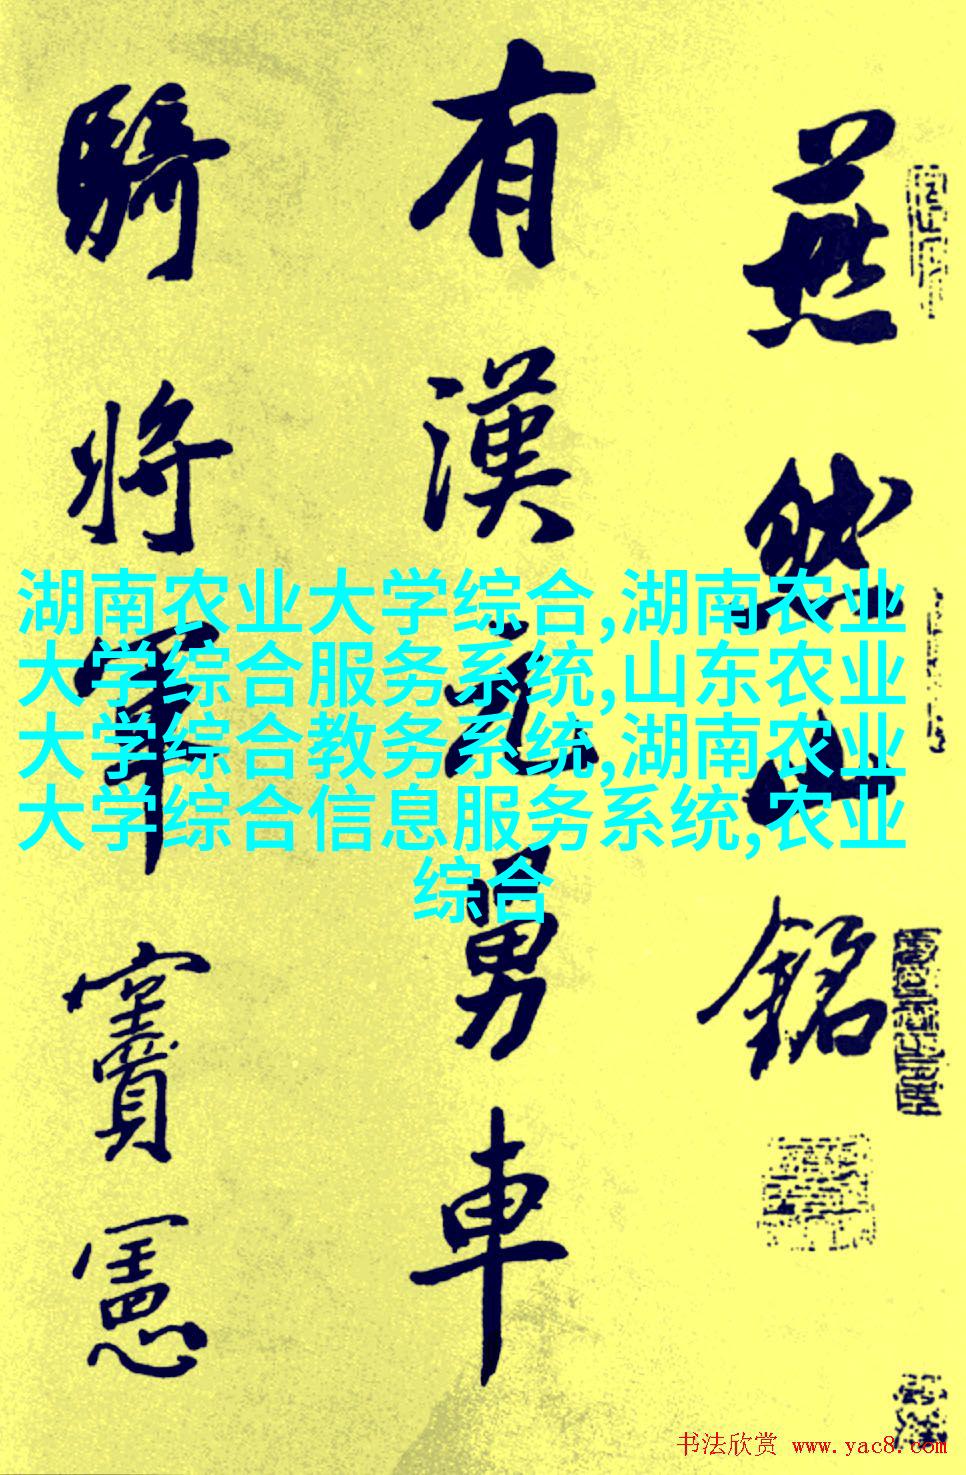 燕然山銘
有漢元舅車
騎将軍竇憲
湖南农业大学综合,湖南农业
大学综合服务系统,山东农业
大学综合教务系统,湖南农业
大学综合信息服务系统,农业
综合
书法欣赏 www.yac8.com